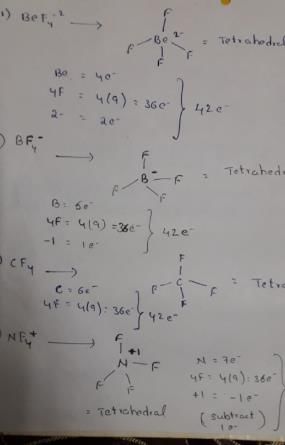 1) BeF4-2 ⟶ F
F Be 2- F = Tetrahedral
F
Be = 4e-
4F = 4(9) = 36e- } 42e-
2- = 2e-
) BF4- ⟶ F
F B- F = Tetrahed
F
B = 5e-
4F = 4(9) = 36e- } 42e-
-1 = 1e-
) CF4 ⟶ F
F C F = Tetra
F
C = 6e-
4F = 4(9) : 36e- } 42e-
) NF4+ ⟶ F
+1
N F
F F
= Tetrahedral
N = 7e-
4F = 4(9) : 36e-
+1 = -1e-
(subtract
1e-